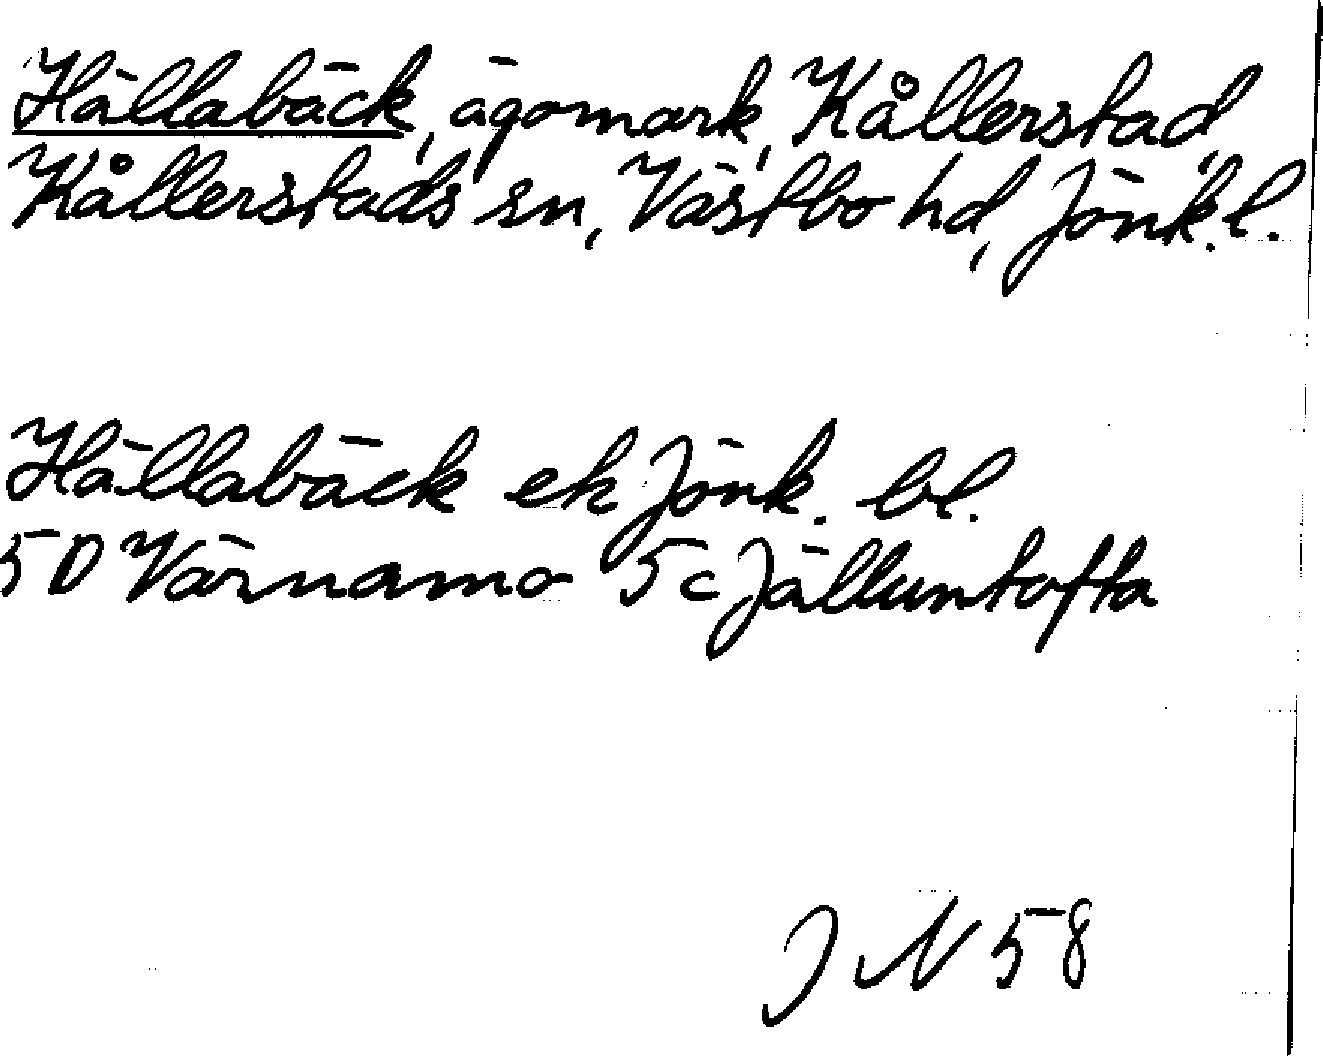 Hällabäck, ägomark, Kållerstad,
Kållerstads sn, Västbo hd, Jönk.l.
Hällabäck ek Jönk. bl.
5D Värnamo 5c Jälluntofta
J N 58